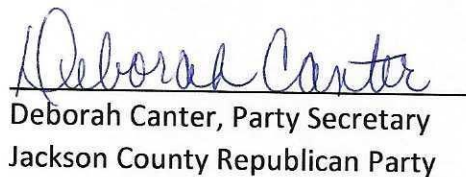 Deborah Canter
Deborah Canter, Party Secretary
Jackson County Republican Party